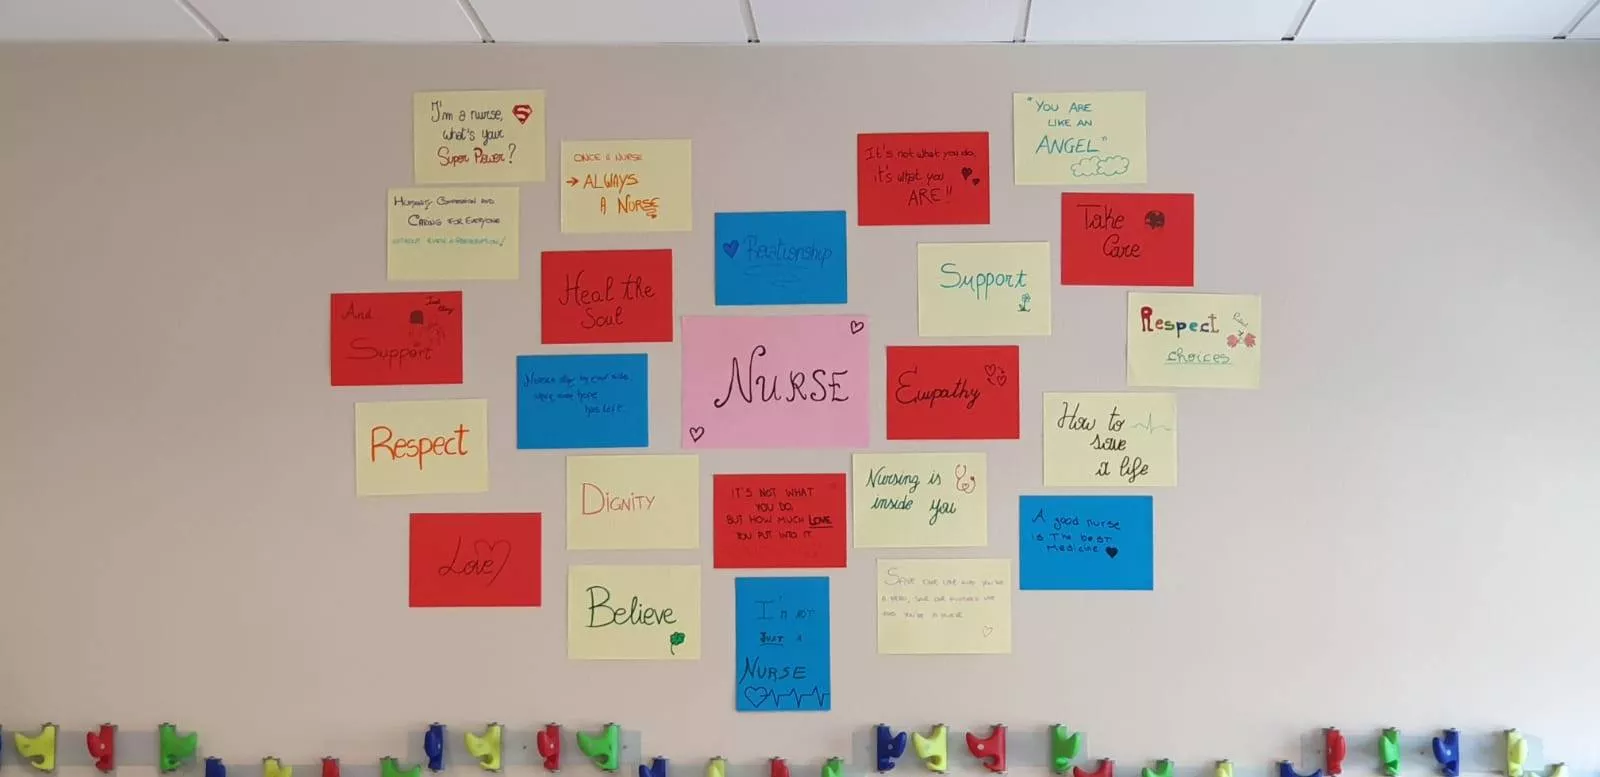 I'm a nurse,
what's your
Super Power?
ONCE A NURSE
→ ALWAYS
A NURSE
It's not what you do,
it's what you
ARE!!
"YOU ARE
LIKE AN
ANGEL"
HUMANITY COMPASSION AND
CARING FOR EVERYONE
Relationship
Take
Care
Heal the
Soul
Support
And
Support
Respect
choices
Nurses stay by your side
has left
NURSE
Empathy
How to
save
a life
Respect
DIGNITY
IT'S NOT WHAT
YOU DO,
BUT HOW MUCH LOVE
YOU PUT INTO IT
Nursing is
inside you
A good nurse
is The best
Medicine
Love
Believe
I'm not
JUST A
NURSE
SAVE ONE LIFE AND YOU'RE
A HERO, SAVE
AND YOU'RE A NURSE